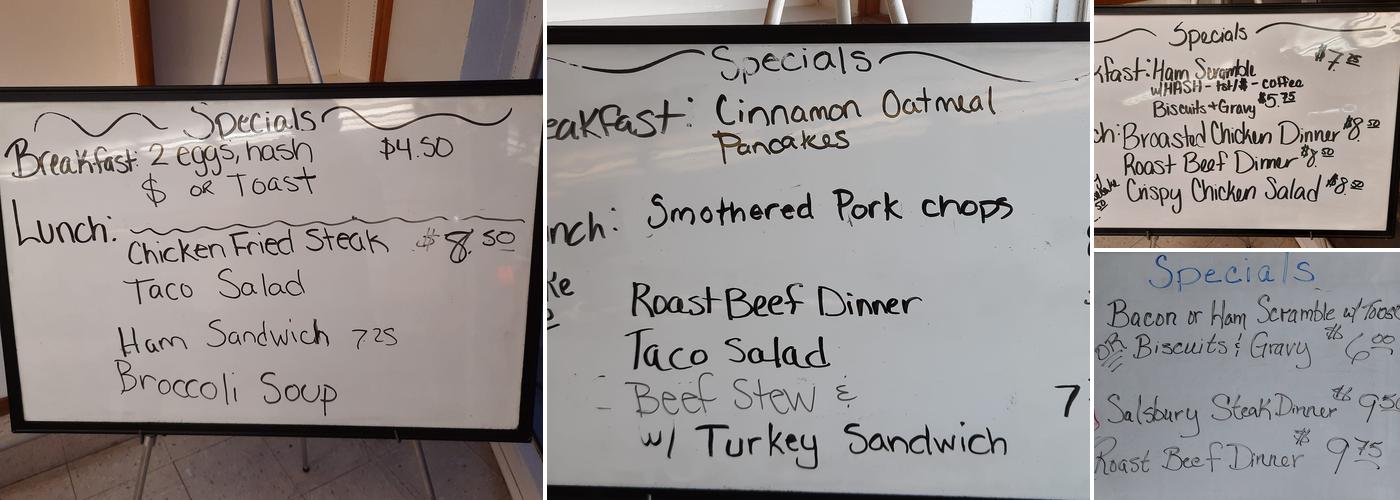 Specials
Breakfast: 2 eggs, hash $4.50
$ OR Toast
Lunch:
Chicken Fried Steak $8.50
Taco Salad
Ham Sandwich 7.25
Broccoli Soup
Specials
eakfast: Cinnamon Oatmeal
Pancakes
nch: Smothered Pork chops
Roast Beef Dinner
Taco Salad
- Beef Stew &
w/ Turkey Sandwich 7
Specials
kfast: Ham Scramble $7.25
w/HASH - tst/$ - coffee
Biscuits + Gravy $5.75
ch: Broasted Chicken Dinner $8.50
Roast Beef Dinner $8.50
Crispy Chicken Salad $8.50
Specials
Bacon or Ham Scramble w/ Toast
OR Biscuits & Gravy $6.00
Salsbury Steak Dinner $9.50
Roast Beef Dinner $9.75